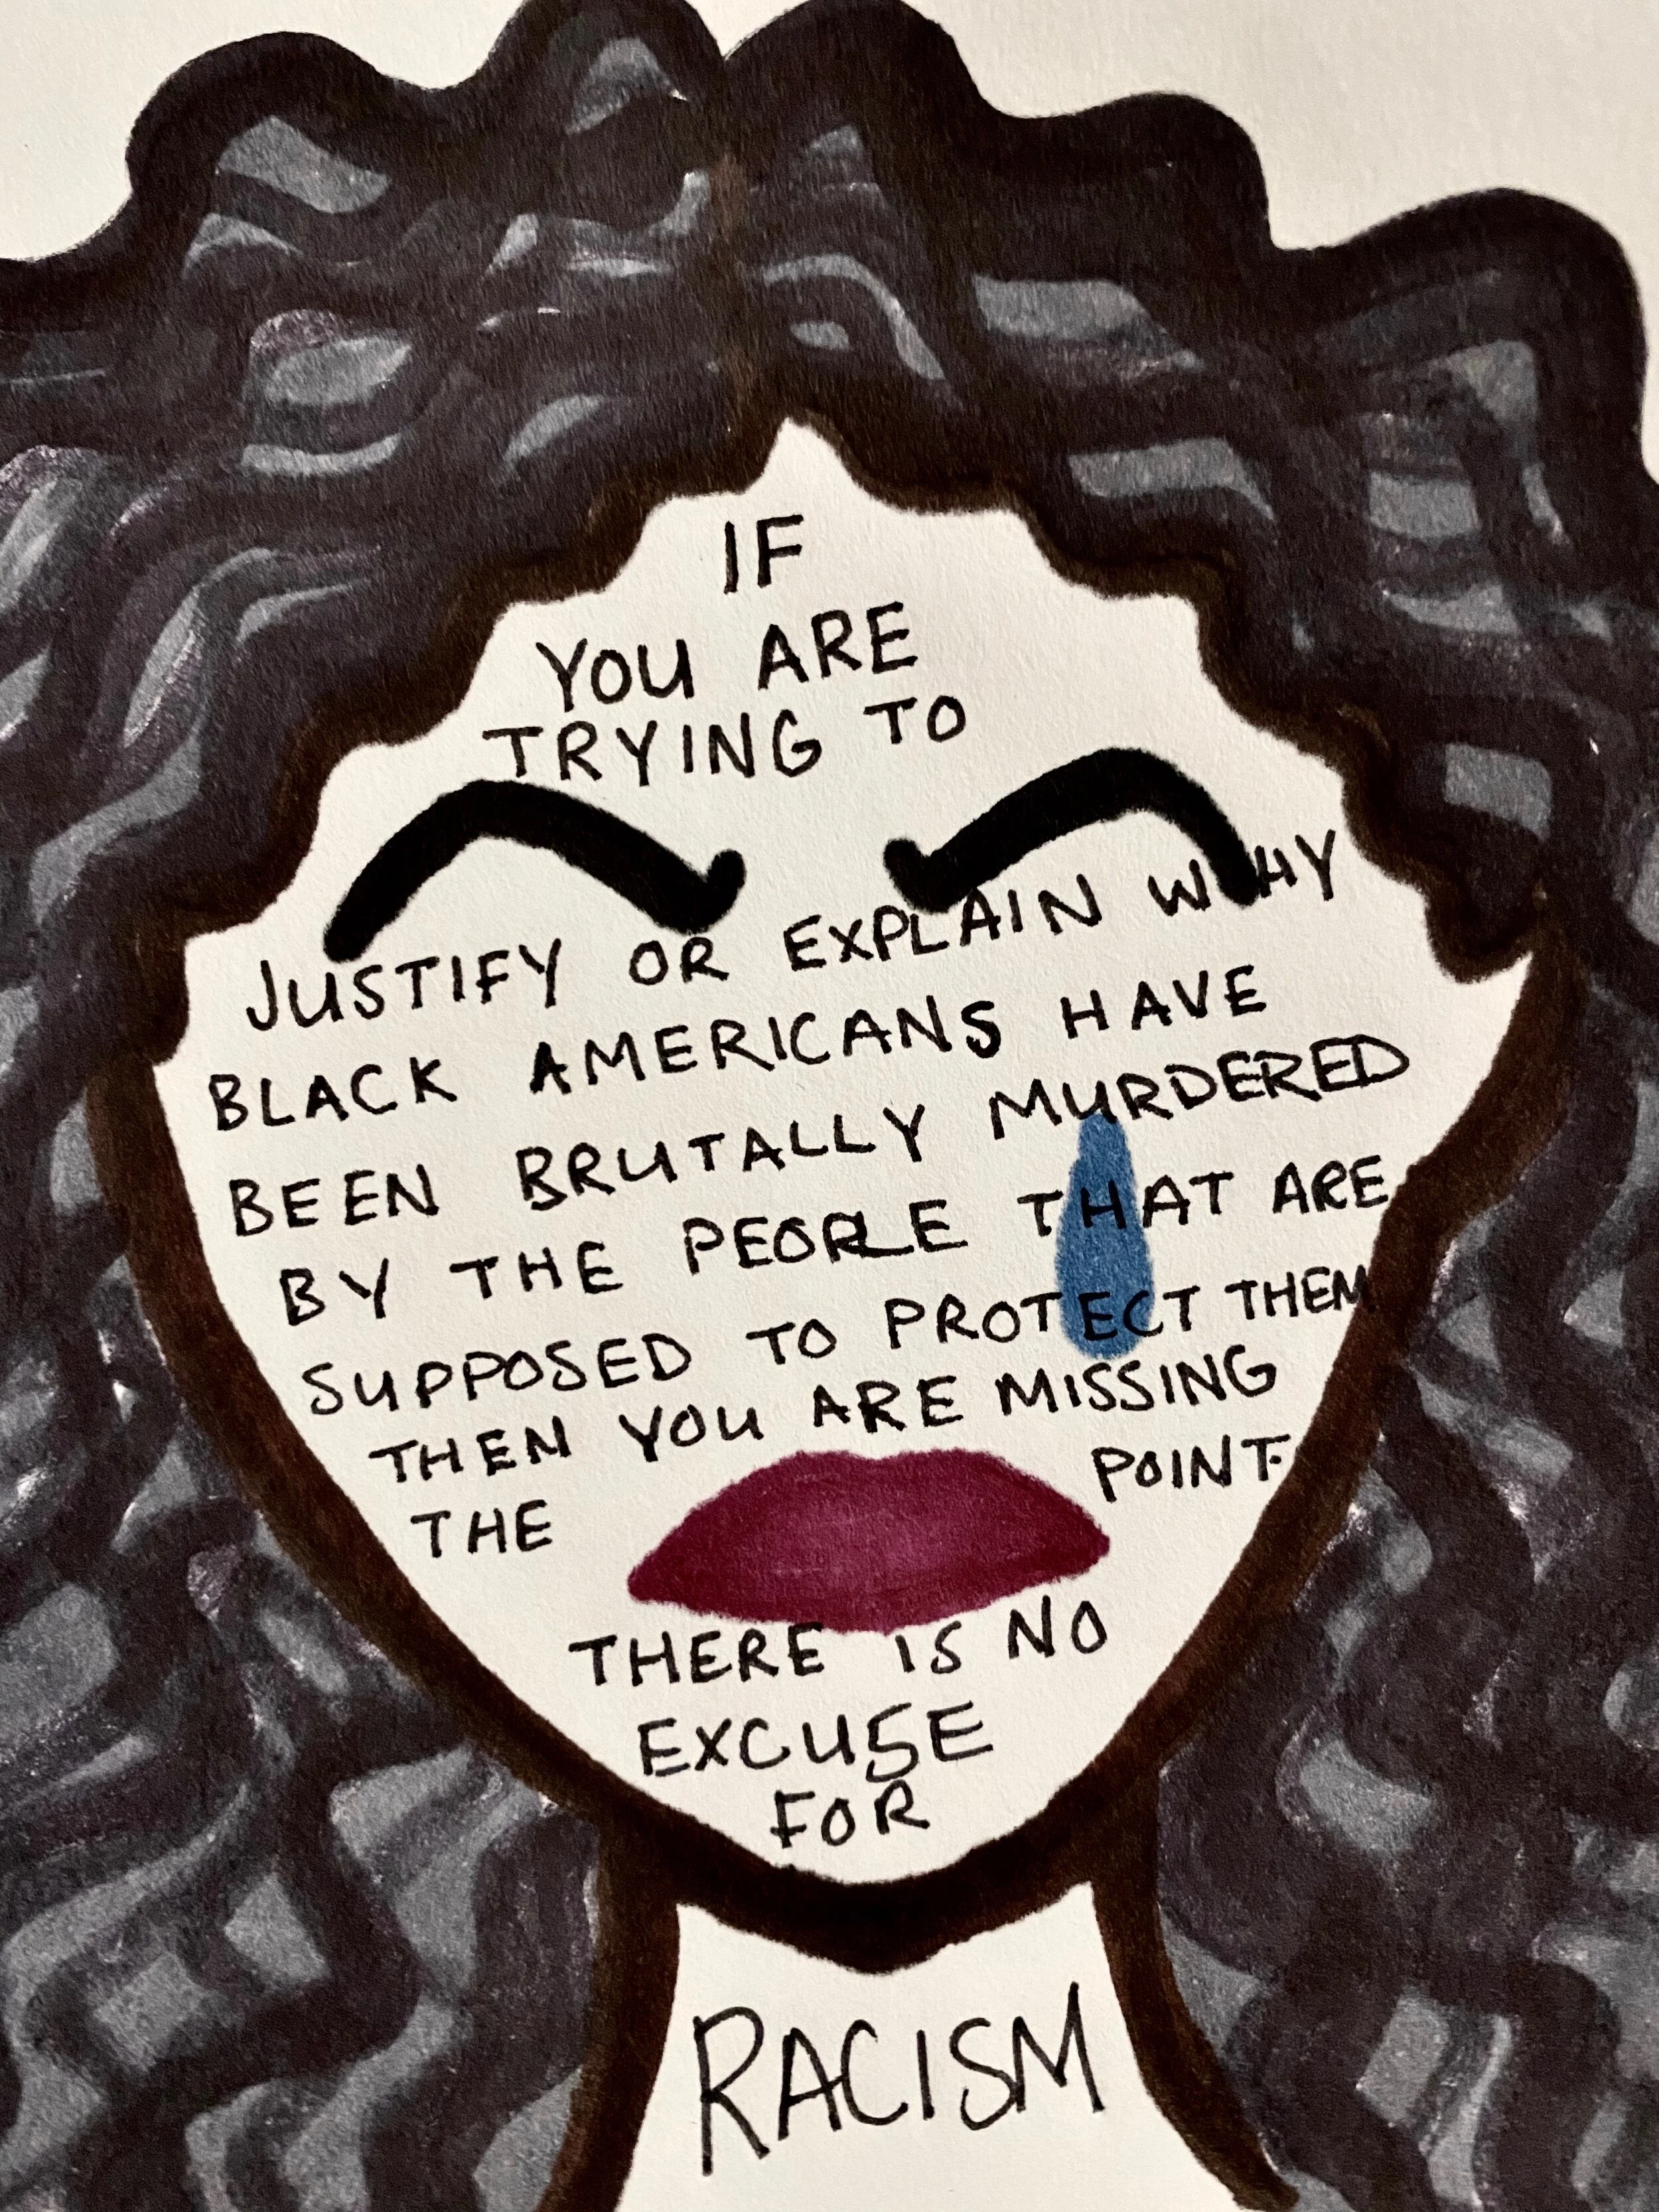 IF
YOU ARE
TRYING TO
JUSTIFY OR EXPLAIN WHY
BLACK AMERICANS HAVE
BEEN BRUTALLY MURDERED
BY THE PEOPLE THAT ARE
SUPPOSED TO PROTECT THEM
THEN YOU ARE MISSING
THE POINT.
THERE IS NO
EXCUSE
FOR
RACISM